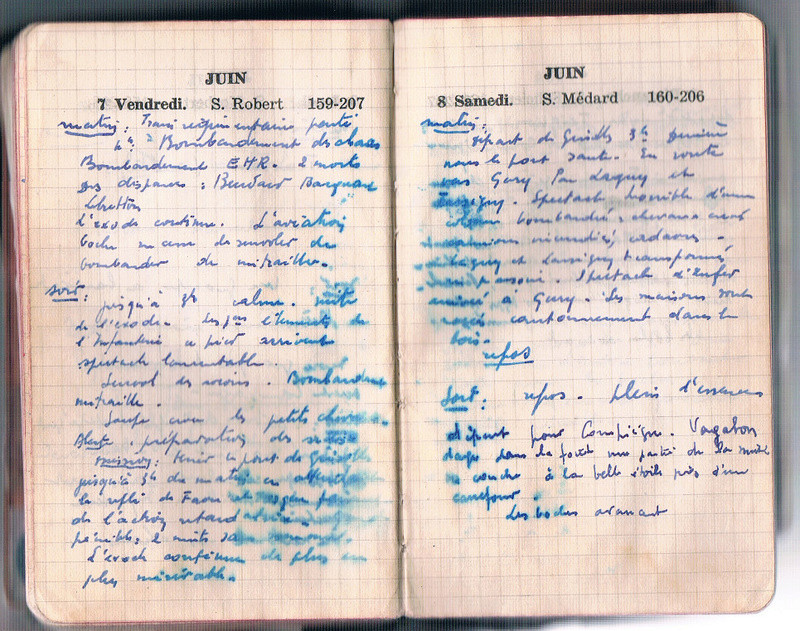 JUIN
7 Vendredi. S. Robert 159-207
matin : Train régimentaire parti
4h. Bombardement des chars
Bombardement EHR. 2 morts
des disparus :
L'exode continue. L'aviation
boche ne cesse de survoler de
bombarder de mitrailler.
soir : jusqu'à 3h calme. suite
de l'exode. Des gens éléments de
l'Infanterie à pied arrivent
spectacle lamentable.
Survol des avions. Bombardement
mitraille.
Soupe avec les petits
Alerte. préparation des
mission : tenir le pont de
jusqu'à 3h du matin en
le repli de
de l'action retard
pénible, 2 nuits sa
L'exode continue de plus en
plus misérable.
JUIN
8 Samedi. S. Médard 160-206
matin :
départ de 3h Derrière
nous le pont saute. En route
vers Gury Par Lagny et
Lassigny. Spectacle horrible d'une
colonne bombardée : chevaux crevés
camions incendiés cadavres.
Lagny et Lassigny transformés
Spectacle d'Enfer
arrivée à Gury. Les maisons sont
cantonnement dans le
bois.
repos
Soir : repos. pleins d'essences
départ pour Compiègne. Vagabon
dage dans la forêt une partie de la nuit
on couche à la belle étoile près d'un
carrefour.
Les boches avancent